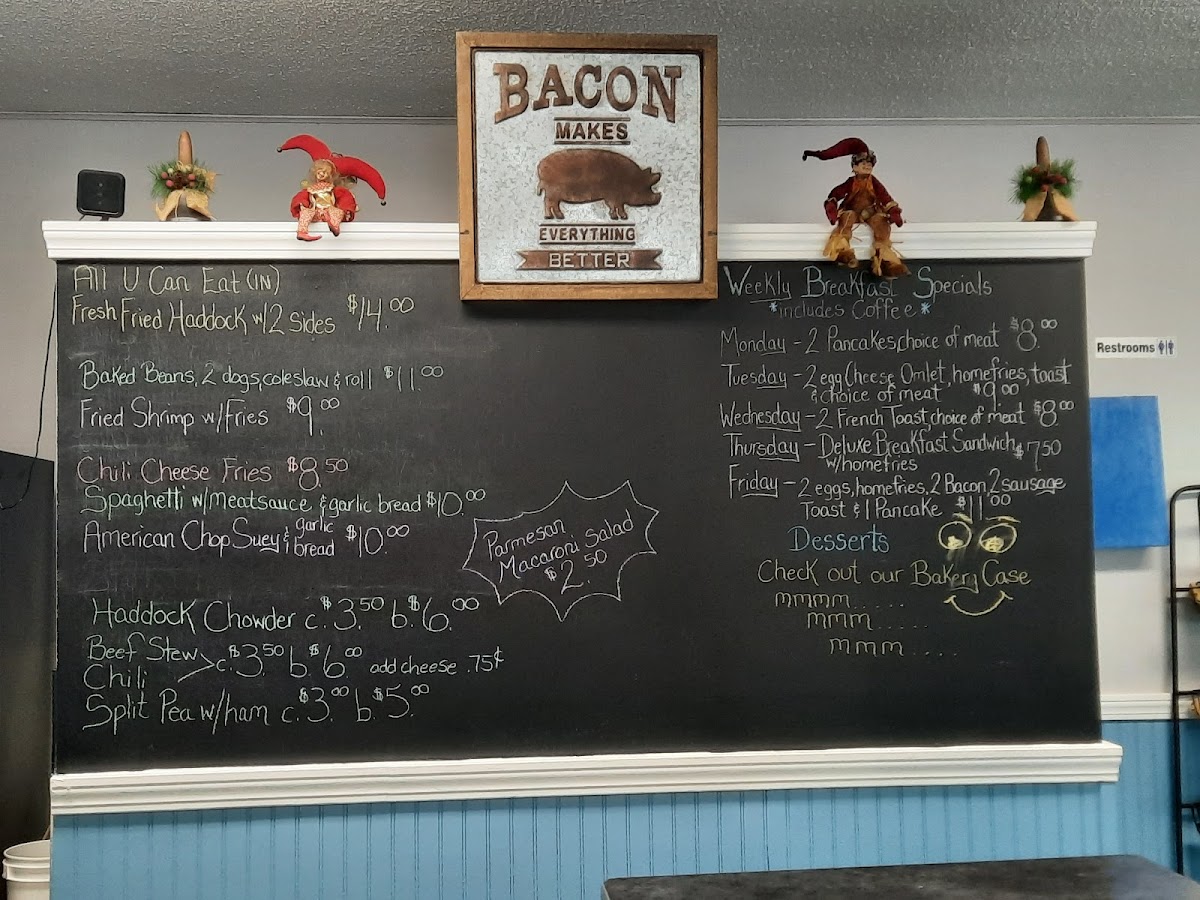 BACON
MAKES
EVERYTHING
BETTER
All U Can Eat (IN)
Fresh Fried Haddock w/2 sides $14.00
Baked Beans, 2 dogs, coleslaw & roll $11.00
Fried Shrimp w/Fries $9.00
Chili Cheese Fries $8.50
Spaghetti w/meatsauce & garlic bread $10.00
American Chop Suey & garlic bread $10.00
Parmesan
Macaroni Salad
$2.50
Haddock Chowder c. $3.50 b. $6.00
Beef Stew
Chili
> c. $3.50 b. $6.00 add cheese .75¢
Split Pea w/ham c. $3.00 b. $5.00
Weekly Breakfast Specials
*includes Coffee*
Monday - 2 Pancakes, choice of meat $8.00
Tuesday - 2 egg Cheese Omlet, homefries, toast
& choice of meat $9.00
Wednesday - 2 French Toast, choice of meat $8.00
Thursday - Deluxe Breakfast Sandwich $7.50
w/homefries
Friday - 2 eggs, homefries, 2 Bacon, 2 sausage
Toast & 1 Pancake $11.00
Desserts
Check out our Bakery Case
mmmm.....
mmm.....
mmm....
Restrooms